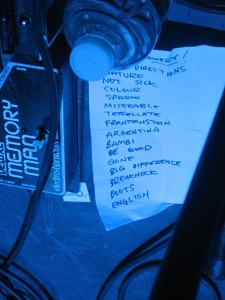 DIRECTIONS
NATURE
NOT SICK
COLOUR
SPARK
MISERABLE
TESSELLATE
FRANKENSTEIN
ARGENTINA
BAMBI
BE GOOD
GONE
BIG DIFFERENCE
BREAKNECK
BOOTS
ENGLISH
MEMORY
MAN